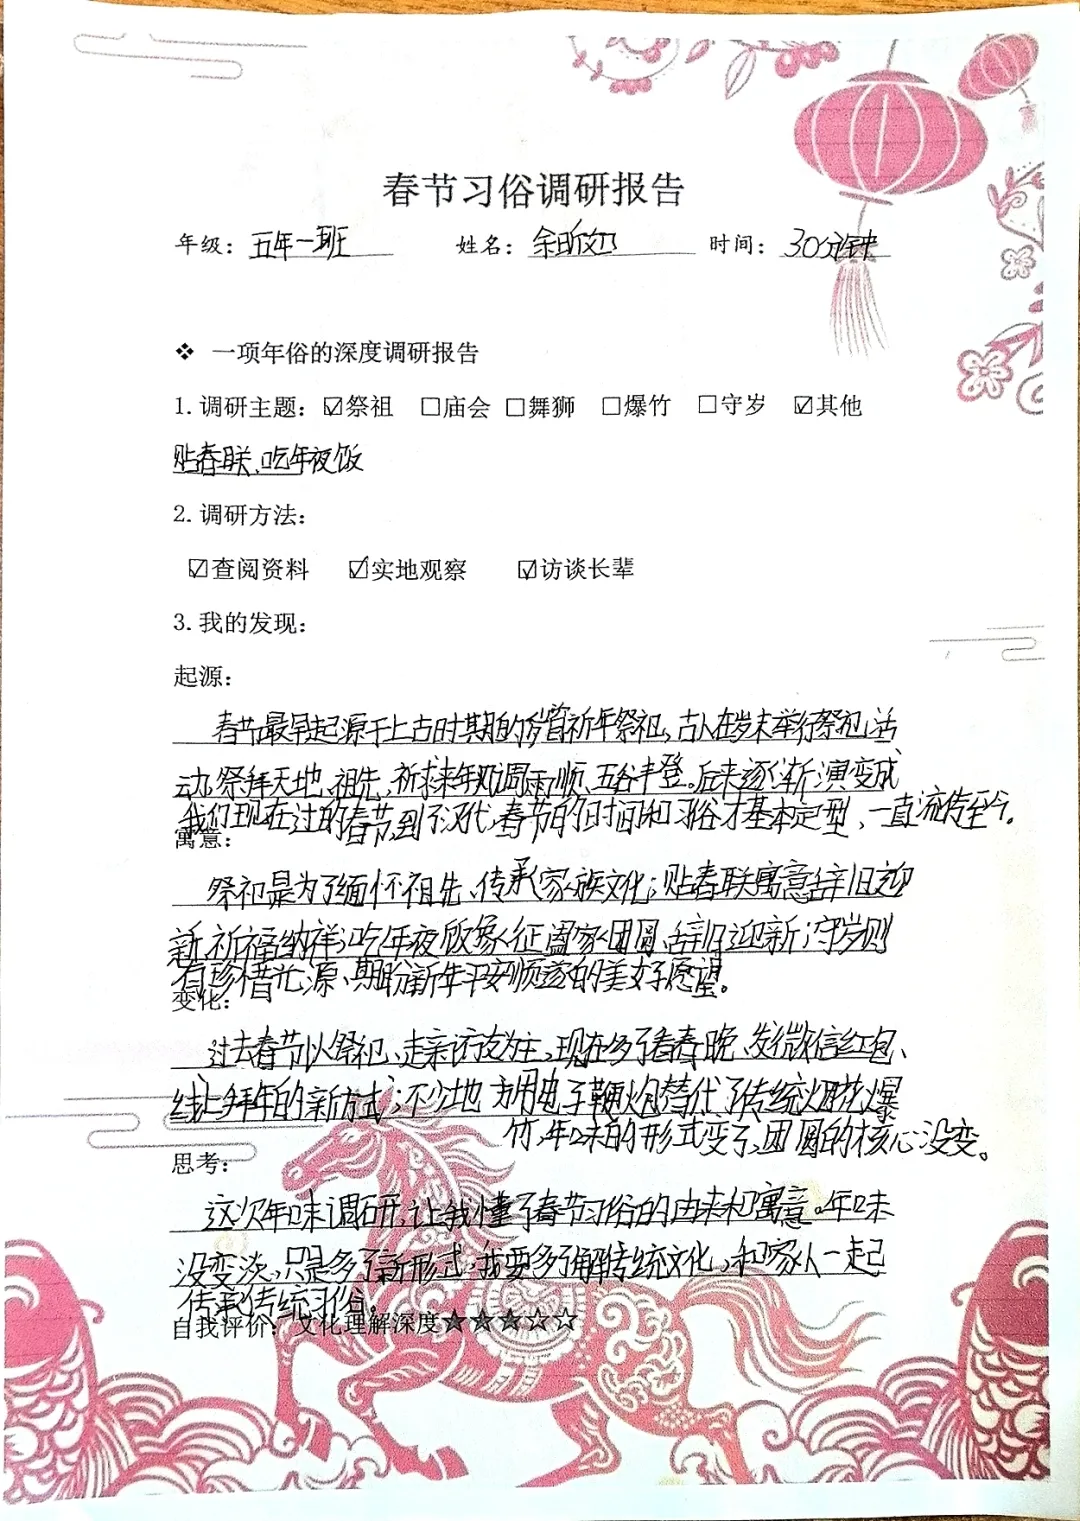 春节习俗调研报告
年级：五年一班 姓名：余昕 时间：30分钟
❖ 一项年俗的深度调研报告
1.调研主题：☑祭祖 □庙会 □舞狮 □爆竹 □守岁 ☑其他
贴春联、吃年夜饭
2.调研方法：
☑查阅资料 ☑实地观察 ☑访谈长辈
3.我的发现：
起源：
春节最早起源于上古时期的岁首祈年祭祀，古人在岁末举行祭祀活
动，祭拜天地、祖先，祈求来年风调雨顺、五谷丰登。后来逐渐演变成
我们现在过的春节，到了汉代，春节的时间和习俗才基本定型，一直流传至今。
寓意：
祭祀是为了缅怀祖先、传承家族文化；贴春联寓意辞旧迎
新，祈福纳祥；吃年夜饭象征阖家团圆，辞旧迎新；守岁则
有珍惜光源、期盼新年平安顺遂的美好愿望。
变化：
过去春节以祭祀、走亲访友为主，现在多了看春晚、发微信红包、
线上拜年的新方式；不少地方用电子鞭炮替代了传统烟花爆
竹，年味的形式变了，团圆的核心没变。
思考：
这次年味调研，让我懂了春节习俗的由来和寓意。年味
没变淡，只是多了新形式，我要多了解传统文化，和家人一起
传承传统习俗。
自我评价：文化理解深度★★★☆☆